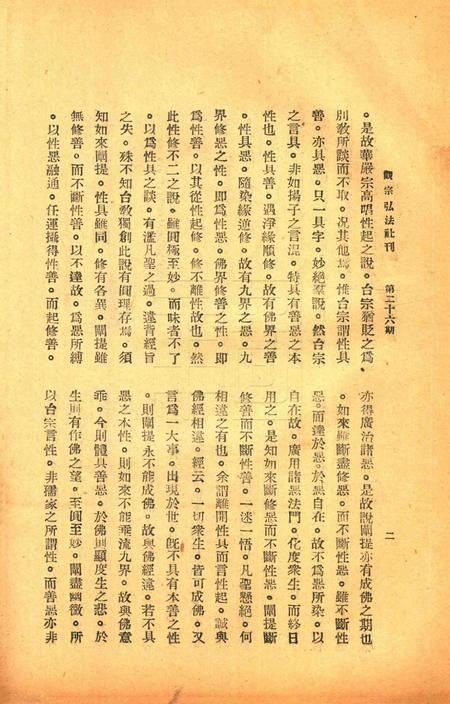 觀宗弘法社刊　第二十六期
二
。是故華嚴宗高唱性起之說。台宗猶貶之爲
別敎所談而不取。况其他焉。惟台宗謂性具
善。亦具惡。只一具字。妙絕羣說。然台宗
之言具。非如揚子之言混。特具有善惡之本
性也。性具善。遇淨緣順修。故有佛界之善
。性具惡。隨染緣逆修。故有九界之惡。九
界修惡之性。即爲性惡。佛界修善之性。即
爲性善。以其從性起修。修不離性故也。然
此性修不二之說。雖圓極至妙。而昧者不了
。以爲性具之談。有濫凡聖之過。違背經旨
之失。殊不知台敎獨創此說有圓理存焉。須
知如來闡提。性具雖同。修有各異。闡提雖
無修善。而不斷性善。以不達故。爲惡所縛
。以性惡融通。任運攝得性善。而起修善。
亦得廣治諸惡。是故說闡提亦有成佛之期也
。如來雖斷盡修惡。而不斷性惡。雖不斷性
惡。而達於惡。於惡自在。故不爲惡所染。以
自在故。廣用諸惡法門。化度衆生。而終日
用之。是知如來斷修惡而不斷性惡。闡提斷
修善而不斷性善。一迷一悟。凡聖懸絕。何
相違之有也。余謂離開性具而言性起。誠與
佛經相違。經云。一切衆生。皆可成佛。又
言爲一大事。出現於世。旣不具有本善之性
。則闡提永不能成佛。故與佛經違。若不具
惡之本性。則如來不能垂流九界。故與佛意
乖。今則體具善惡。於佛則顯度生之悲。於
生則有作佛之望。至圓至妙。闡盡幽微。所
以台宗言性。非儒家之所謂性。而善惡亦非